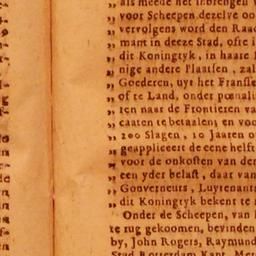 „ als meede het inbrengen
„ voor Scheepen dezelve oo
„ vervolgens word den Raad
„ mant in deeze Stad, ofte i
„ dit Koningryk, in haare
„ nige andere Plaatsen, zal
„ Goederen, uyt het Fransse
„ of te Land, onder pœnali
„ ren naar de Frontieren va
„ caaten te betaalen, en voo
„ 200 Slagen, 10 Jaaren o
„ geappliceert de eene helft
„ voor de onkosten van den
„ een yder belast, daar van
„ Gouverneurs, Luytenants
„ dit Koningryk bekent te
Onder de Scheepen, van
te rug gekoomen, bevinden
by, John Rogers, Raymund
Stad Rotterdam Kapt. Mer